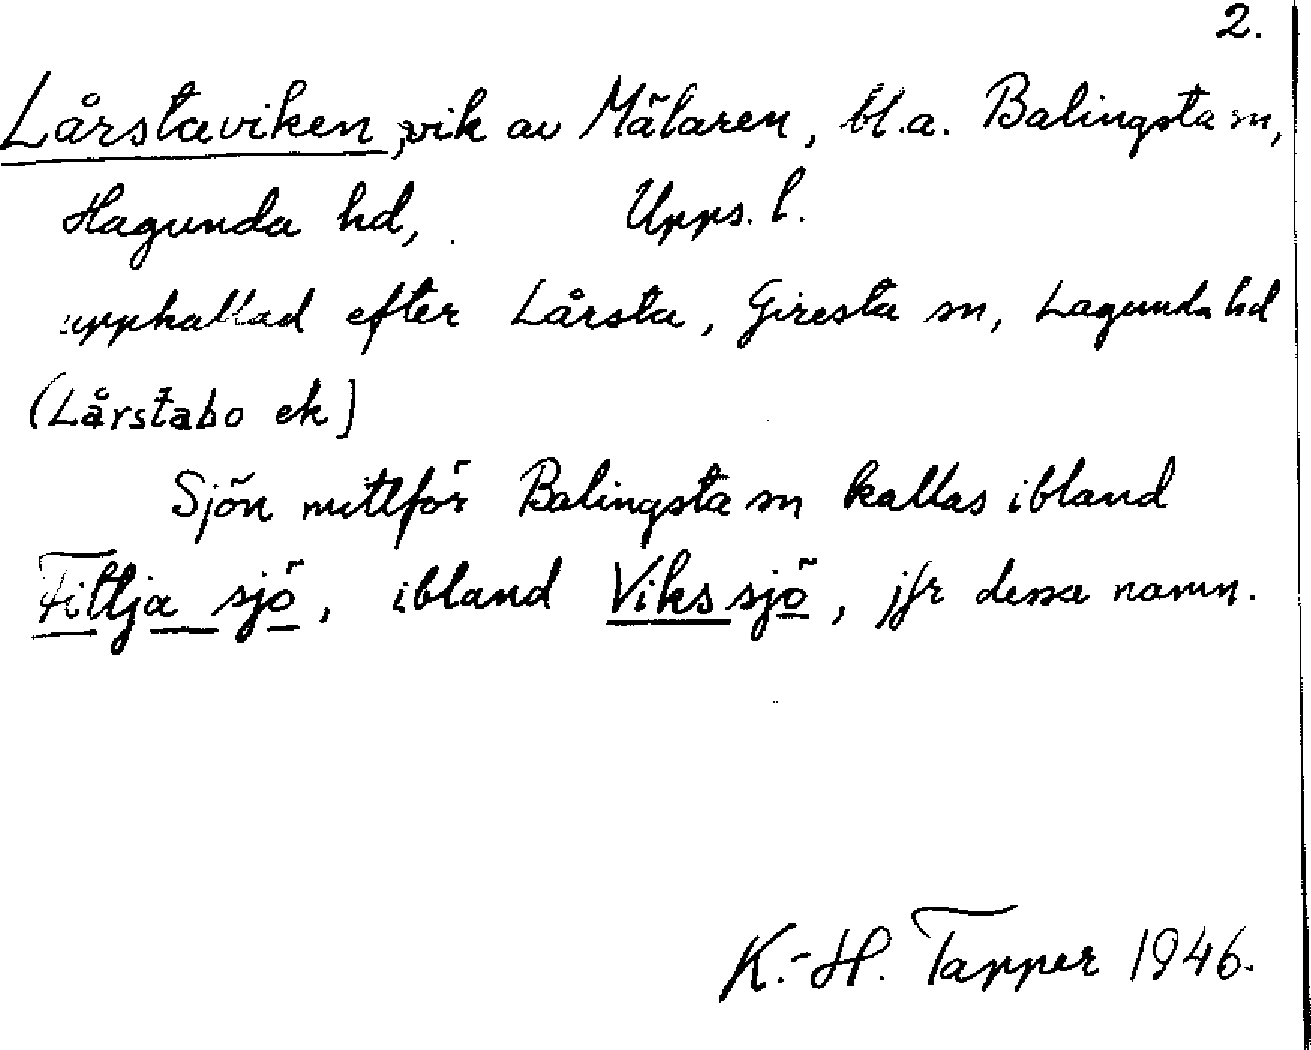 2.
Lårstaviken, vik av Mälaren, bl.a. Balingsta sn,
Hagunda hd, Upps. l.
uppkallad efter Lårsta, Giresta sn, Lagunda hd
(Lårstabo ek)
Sjön mittför Balingsta sn kallas ibland
Fittja sjö, ibland Vikssjö, jfr dessa namn.
K.-H. Tapper 1946.